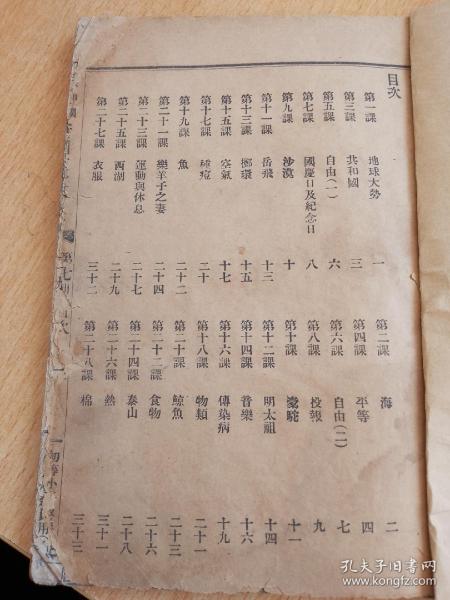 目次
第一課　地球大勢　一
第二課　海　二
第三課　共和國　三
第四課　平等　四
第五課　自由(一)　六
第六課　自由(二)　七
第七課　國慶日及紀念日　八
第八課　投報　九
第九課　沙漠　十
第十課　駱駝　十一
第十一課　岳飛　十三
第十二課　明太祖　十四
第十三課　擲環　十五
第十四課　音樂　十六
第十五課　空氣　十七
第十六課　傳染病　十九
第十七課　種痘　二十
第十八課　物類　二十一
第十九課　魚　二十二
第二十課　鯨魚　二十三
第二十一課　樂羊子之妻　二十四
第二十二課　食物　二十六
第二十三課　運動與休息　二十七
第二十四課　泰山　二十八
第二十五課　西湖　二十九
第二十六課　熱　三十一
第二十七課　衣服　三十二
第二十八課　棉　三十三
孔夫子旧书网
book.kongfz.com